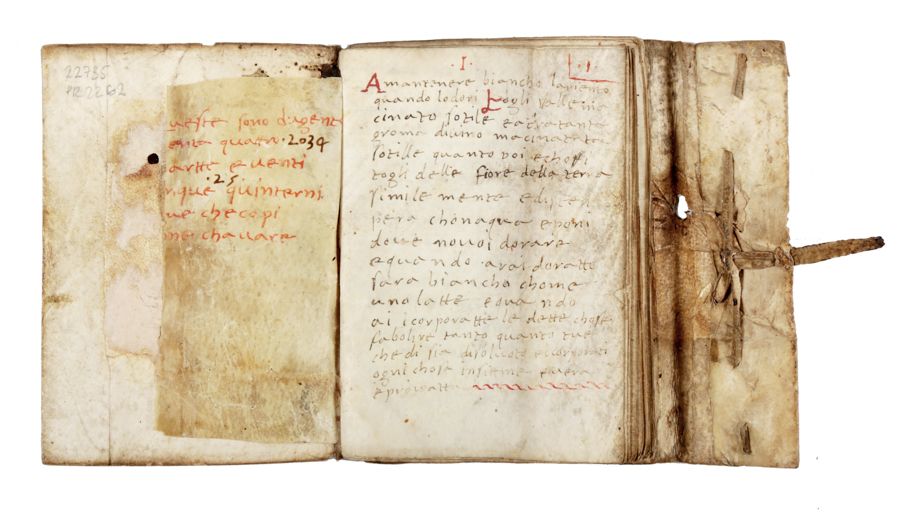 22735
ueste sono dugente
enta quatr · 2034
artte e venti
· 25 ·
nque quinterni
ue checopi
me chavare
· I ·
· I ·
Amantenere biancho lariento
quando lodori Togli vallemie
cinato sotile eatratante
groma divino macinatato
sotille quanto poi echosi
togli delle fiore della terra
simile mente edisten
pera chonaqua eponi
dove novoi dorare
equando arai doratto
sara biancho chome
uno latte equando
ai icorporatte le dette chose
fabolire tanto quanto tue
che di sia disoluto ecorporati
ogni chosa insieme evera
eprovatta